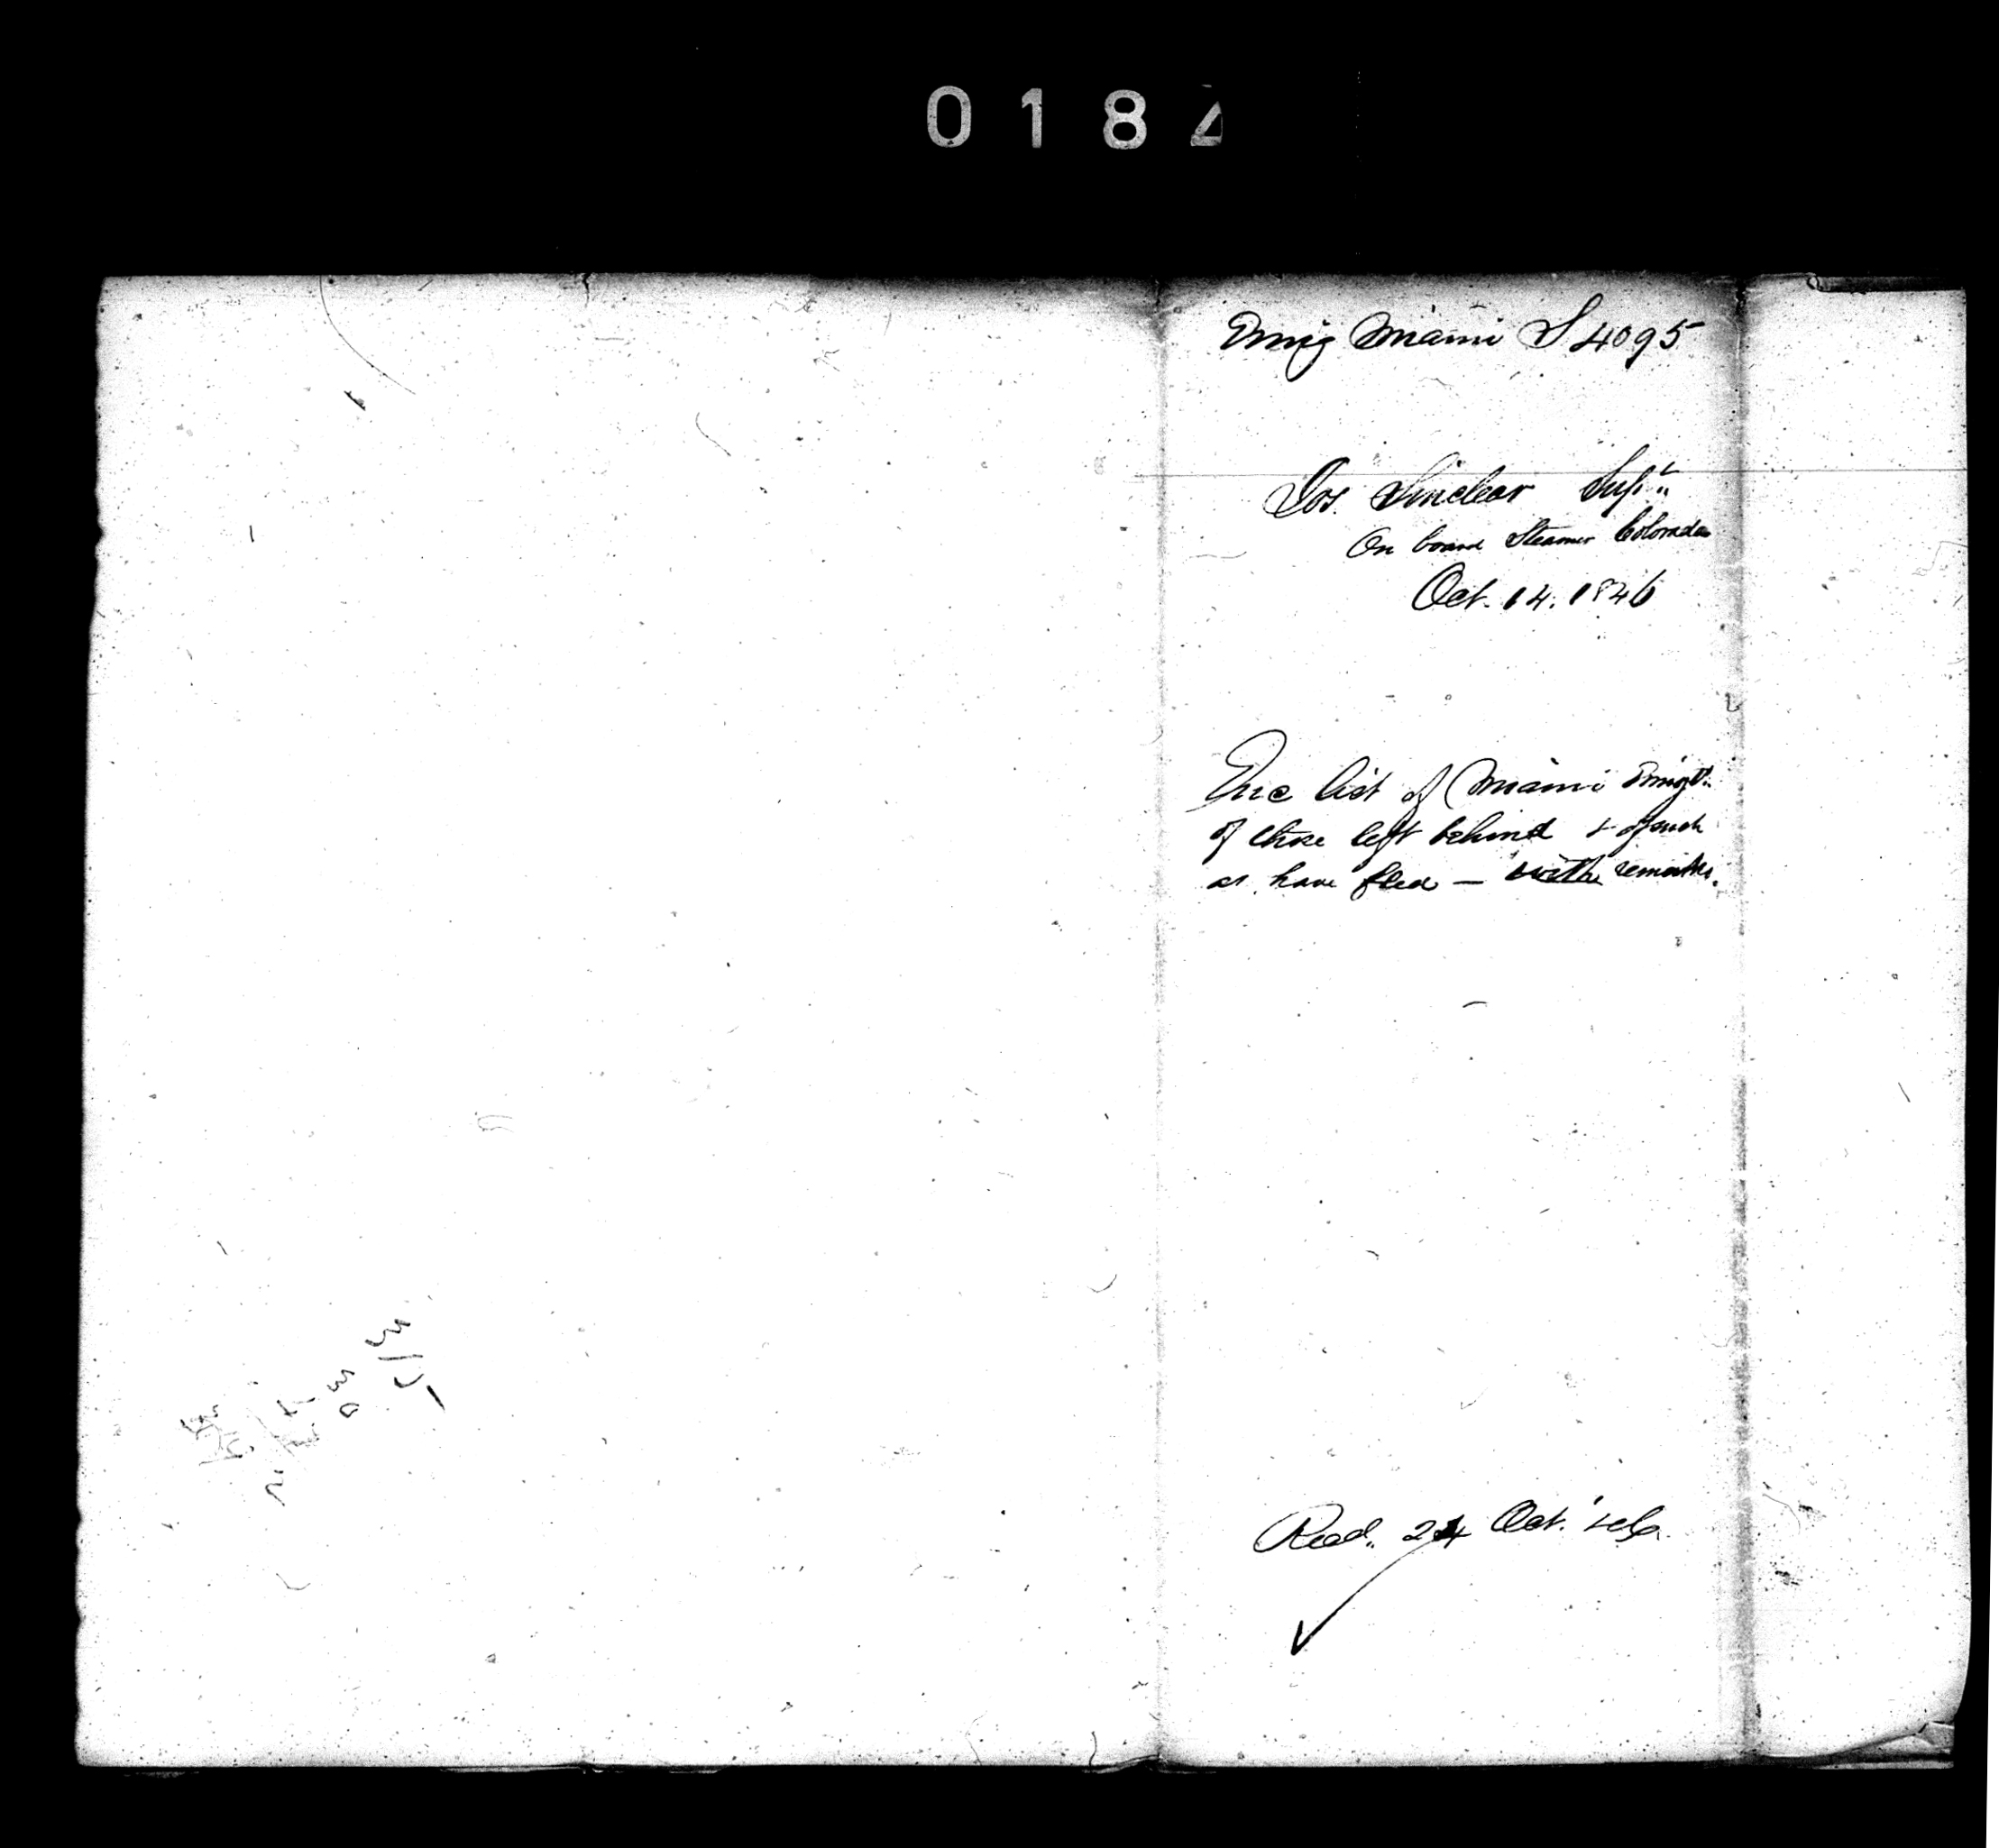 0184
Emig Miami S 4095
Jos. Sinclear Supt.
On board Steamer Colorado
Oct. 14. 1846
Enc list of Miami Emigts.
of those left behind & of such
as have fled — with remarks.
Recd. 24 Oct.